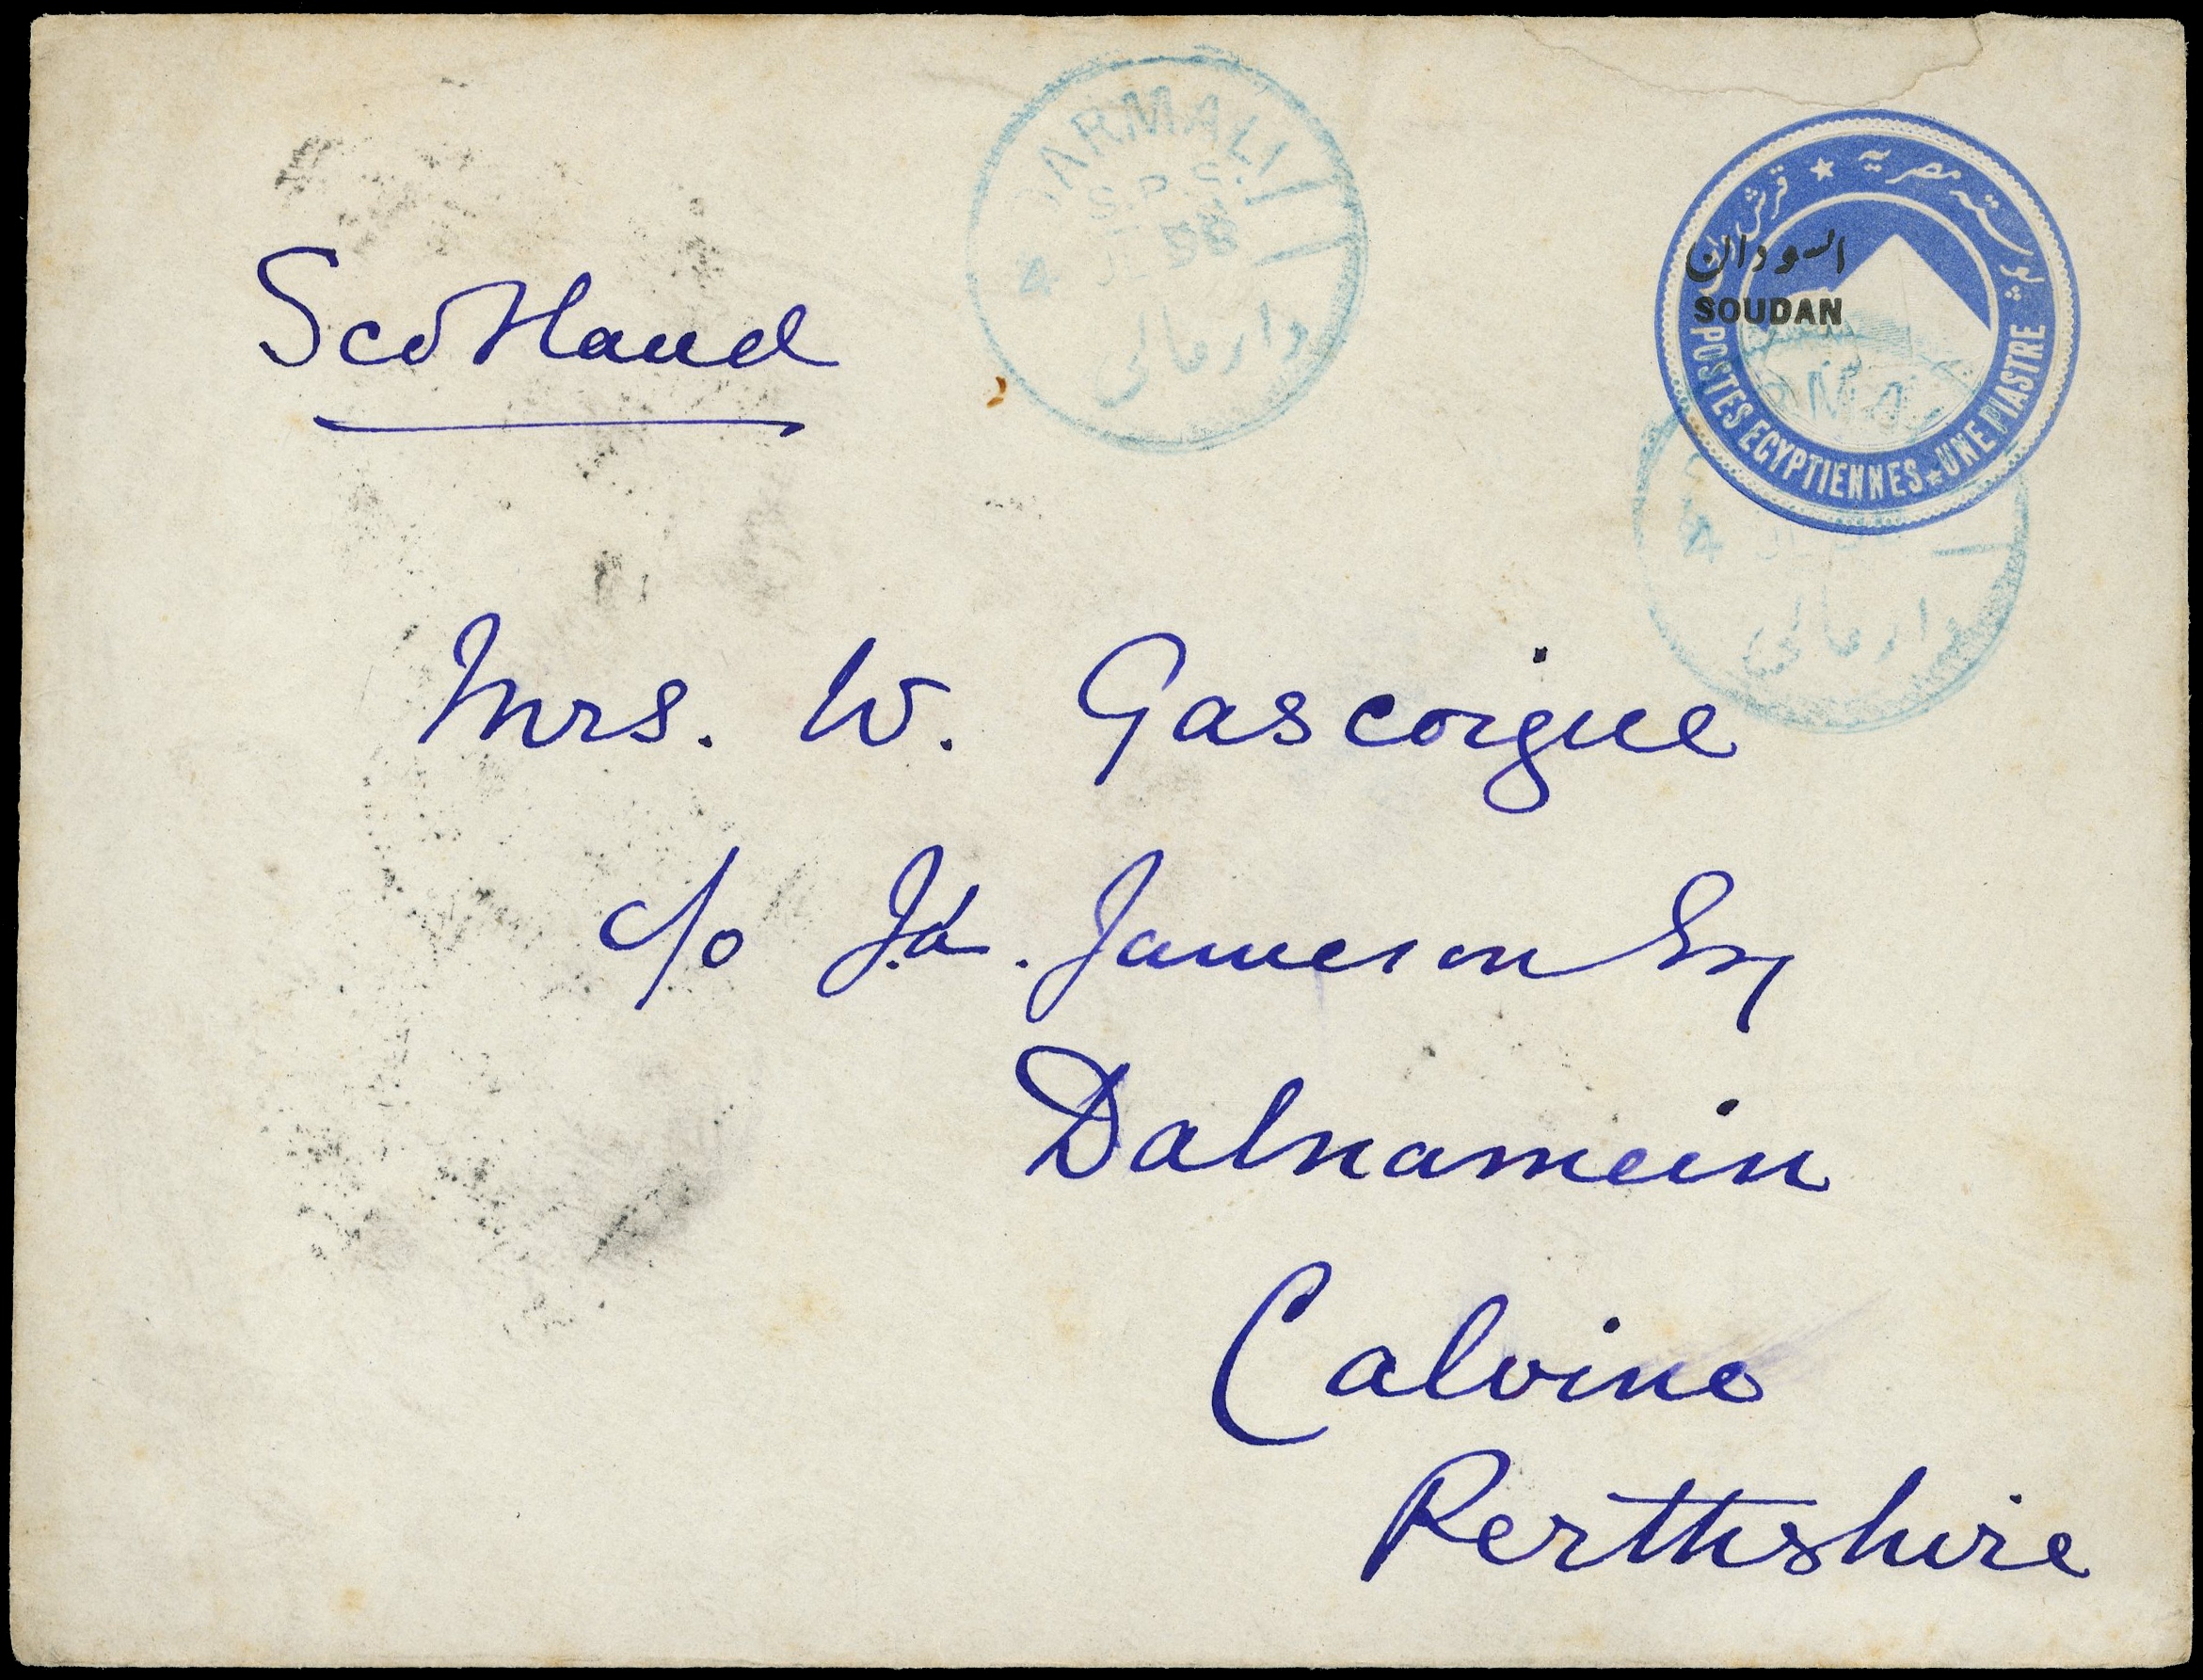 DARMALI
S.P.S.
4 98
دارمالى
بوسته مصرية ★ قرش
السودان
SOUDAN
POSTES EGYPTIENNES ★ UNE PIASTRE
4
دارمالى
Scotland
Mrs. W. Gascoigne
c/o Jameson Esq
Dalnamein
Calvine
Perthshire